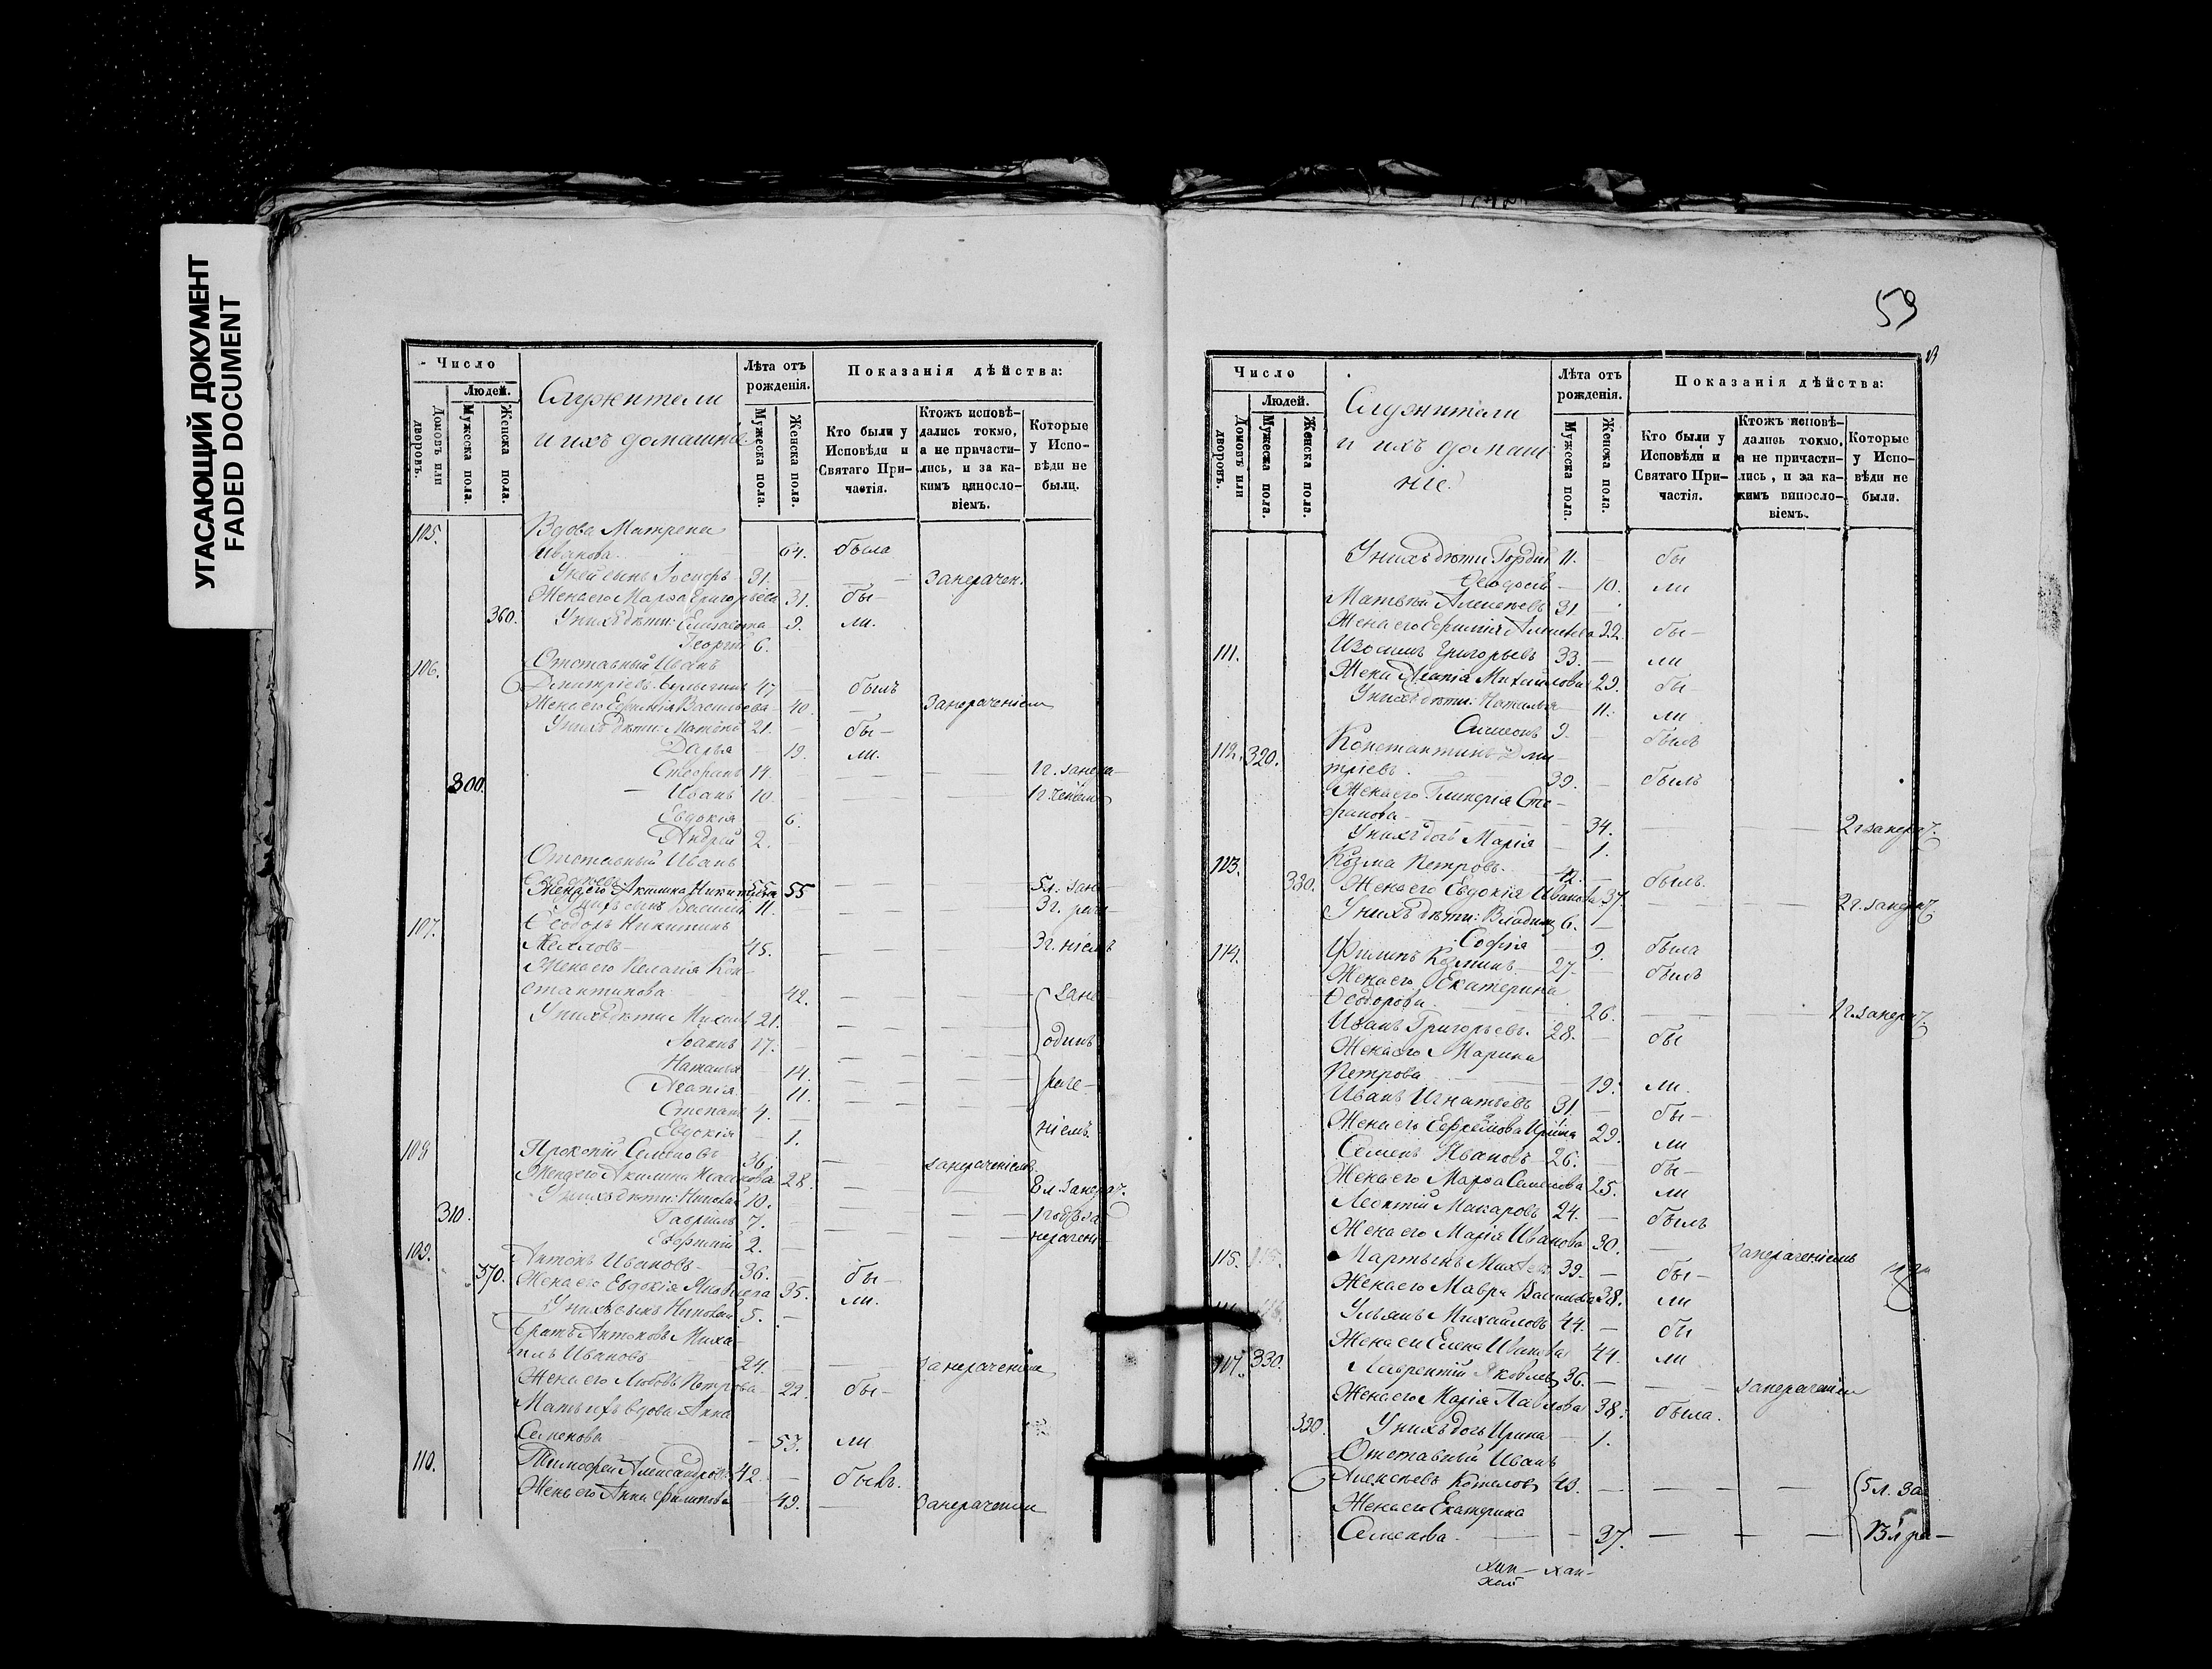 УГАСАЮЩИЙ ДОКУМЕНТ
FADED DOCUMENT
Число
Людей.
Домовъ или дворовъ.
Мужеска пола.
Женска пола.
Служители
и ихъ домашніе
Лѣта отъ рожденія.
Мужеска пола.
Женска пола.
Показанія дѣйства:
Кто были у Исповѣди и Святаго Причастія.
Ктожъ исповѣдались токмо, а не причастились, и за какимъ винословіемъ.
Которые у Исповѣди не были.
105. Вдова Матрена
Иванова 64. была
У ней сынъ Іосифъ 31. — — занерачен.
Жена его Марѳа Григорьева 31. бы—
360. У нихъ дѣти: Елисавета 9. ли.
Георгій 6.
106. Отставный Иванъ
Дмитріевъ 47 — былъ
Жена его Евфимія Васильева 40. — занераченіем
У нихъ дѣти: Матвѣй 21. — бы—
Дарья — 19. ли.
Стефанъ 14. — — — 1 г. занера—
300. Иванъ 10. — — — 1 г. ченіем
Евдокія 6.
Андрей 2. —
Отставный Иванъ
Жена его Акилина Никитина 55 — — 5 л. зане
У нихъ сынъ Василій 11. — — 3 г. раче
107. Ѳеодоръ Никитинъ
45. — — 3 г. ніемъ
Жена его Пелагія Кон-
стантинова 42. — — — зане
У нихъ дѣти: Михаилъ 21. — — —
Іоаннъ 17. — — — одинъ
Наталья 14. — — —
Агапія 11. — — — раче—
Степанъ 4. — — —
Евдокія — 1. ніемъ.
108 Прокопій Семеновъ 36. — занераченіемъ.
Жена его Акилина Исакова 28. — —
У нихъ дѣти: Николай 10. — —
310. Гавріилъ 7. — — — 1 годъ за
Евфимій 2. — — — нерачені
109. Антонъ Ивановъ 36. — бы—
370. Жена его Евдокія Яковлева 35. ли.
У нихъ сынъ Николай 5. —
Братъ Антоновъ Миха-
илъ Ивановъ 24. — — занераченіем
Жена его Любовь Петрова 22. бы—
Мать ихъ вдова Анна
Семенова — 53. ли
110. Тимоѳей Александровъ 42. — былъ.
Жена его Анна Филипова 49. — занераченіем
59
Число
Людей.
Домовъ или дворовъ.
Мужеска пола.
Женска пола.
Служители
и ихъ домаш
ніе.
Лѣта отъ рожденія.
Мужеска пола.
Женска пола.
Показанія дѣйства:
Кто были у Исповѣди и Святаго Причастія.
Ктожъ исповѣдались токмо, а не причастились, и за какимъ винословіемъ.
Которые у Исповѣди не были.
У нихъ дѣти Гордій 11. — бы
Ѳеодосія — 10. ли
Матвѣй Алексѣевъ 31. —
Жена его Евфимія 22. бы—
111. Изосимъ Григорьевъ 33. — ли
Жена Агапія Михайлова 29. бы—
У нихъ дѣти: Наталья 11. ли
Симеонъ 9. — былъ
112. 320. Константинъ Дми-
тріевъ. 39. — былъ
Жена его Гликерія Сте-
фанова 34. — — 2 г. занерач.
У нихъ дочь Марія — 1.
113. Козма Петровъ. 42. — былъ.
380. Жена его Евдокія Иванова 37 — — 2 г. занерач.
У нихъ дѣти: Владимір 6. —
Софія 9. была
114. Филипъ Козминъ 27. — былъ
Жена его Екатерина
Ѳеодорова 26. — — — 1 г. занерач.
Иванъ Григорьевъ. 28. — бы
Жена его Марина
Петрова 19. ли.
Иванъ Игнатьевъ 31. — бы—
Жена его Ефремова Ирина 29. ли
Семенъ Ивановъ 26. — бы—
Жена его Марѳа Семенова 25. ли
Леонтій Макаровъ 24. — былъ
Жена его Марія Иванова 30. — занераченіемъ
115. Мартынъ 39. — бы—
Жена его Мавра Васильева 38. ли
Ульянъ Михайловъ 44. — бы
Жена его Елена Иванова 44. ли
117. 330. Лаврентій Яковлевъ 36. — — занераченіем
Жена его Марія Павлова 38. была.
390. У нихъ дочь Ирина — 1.
Отставный Иванъ
Алексѣевъ 43. — — — 5 л. за
Жена его Екатерина
Семенова — 37. — — —